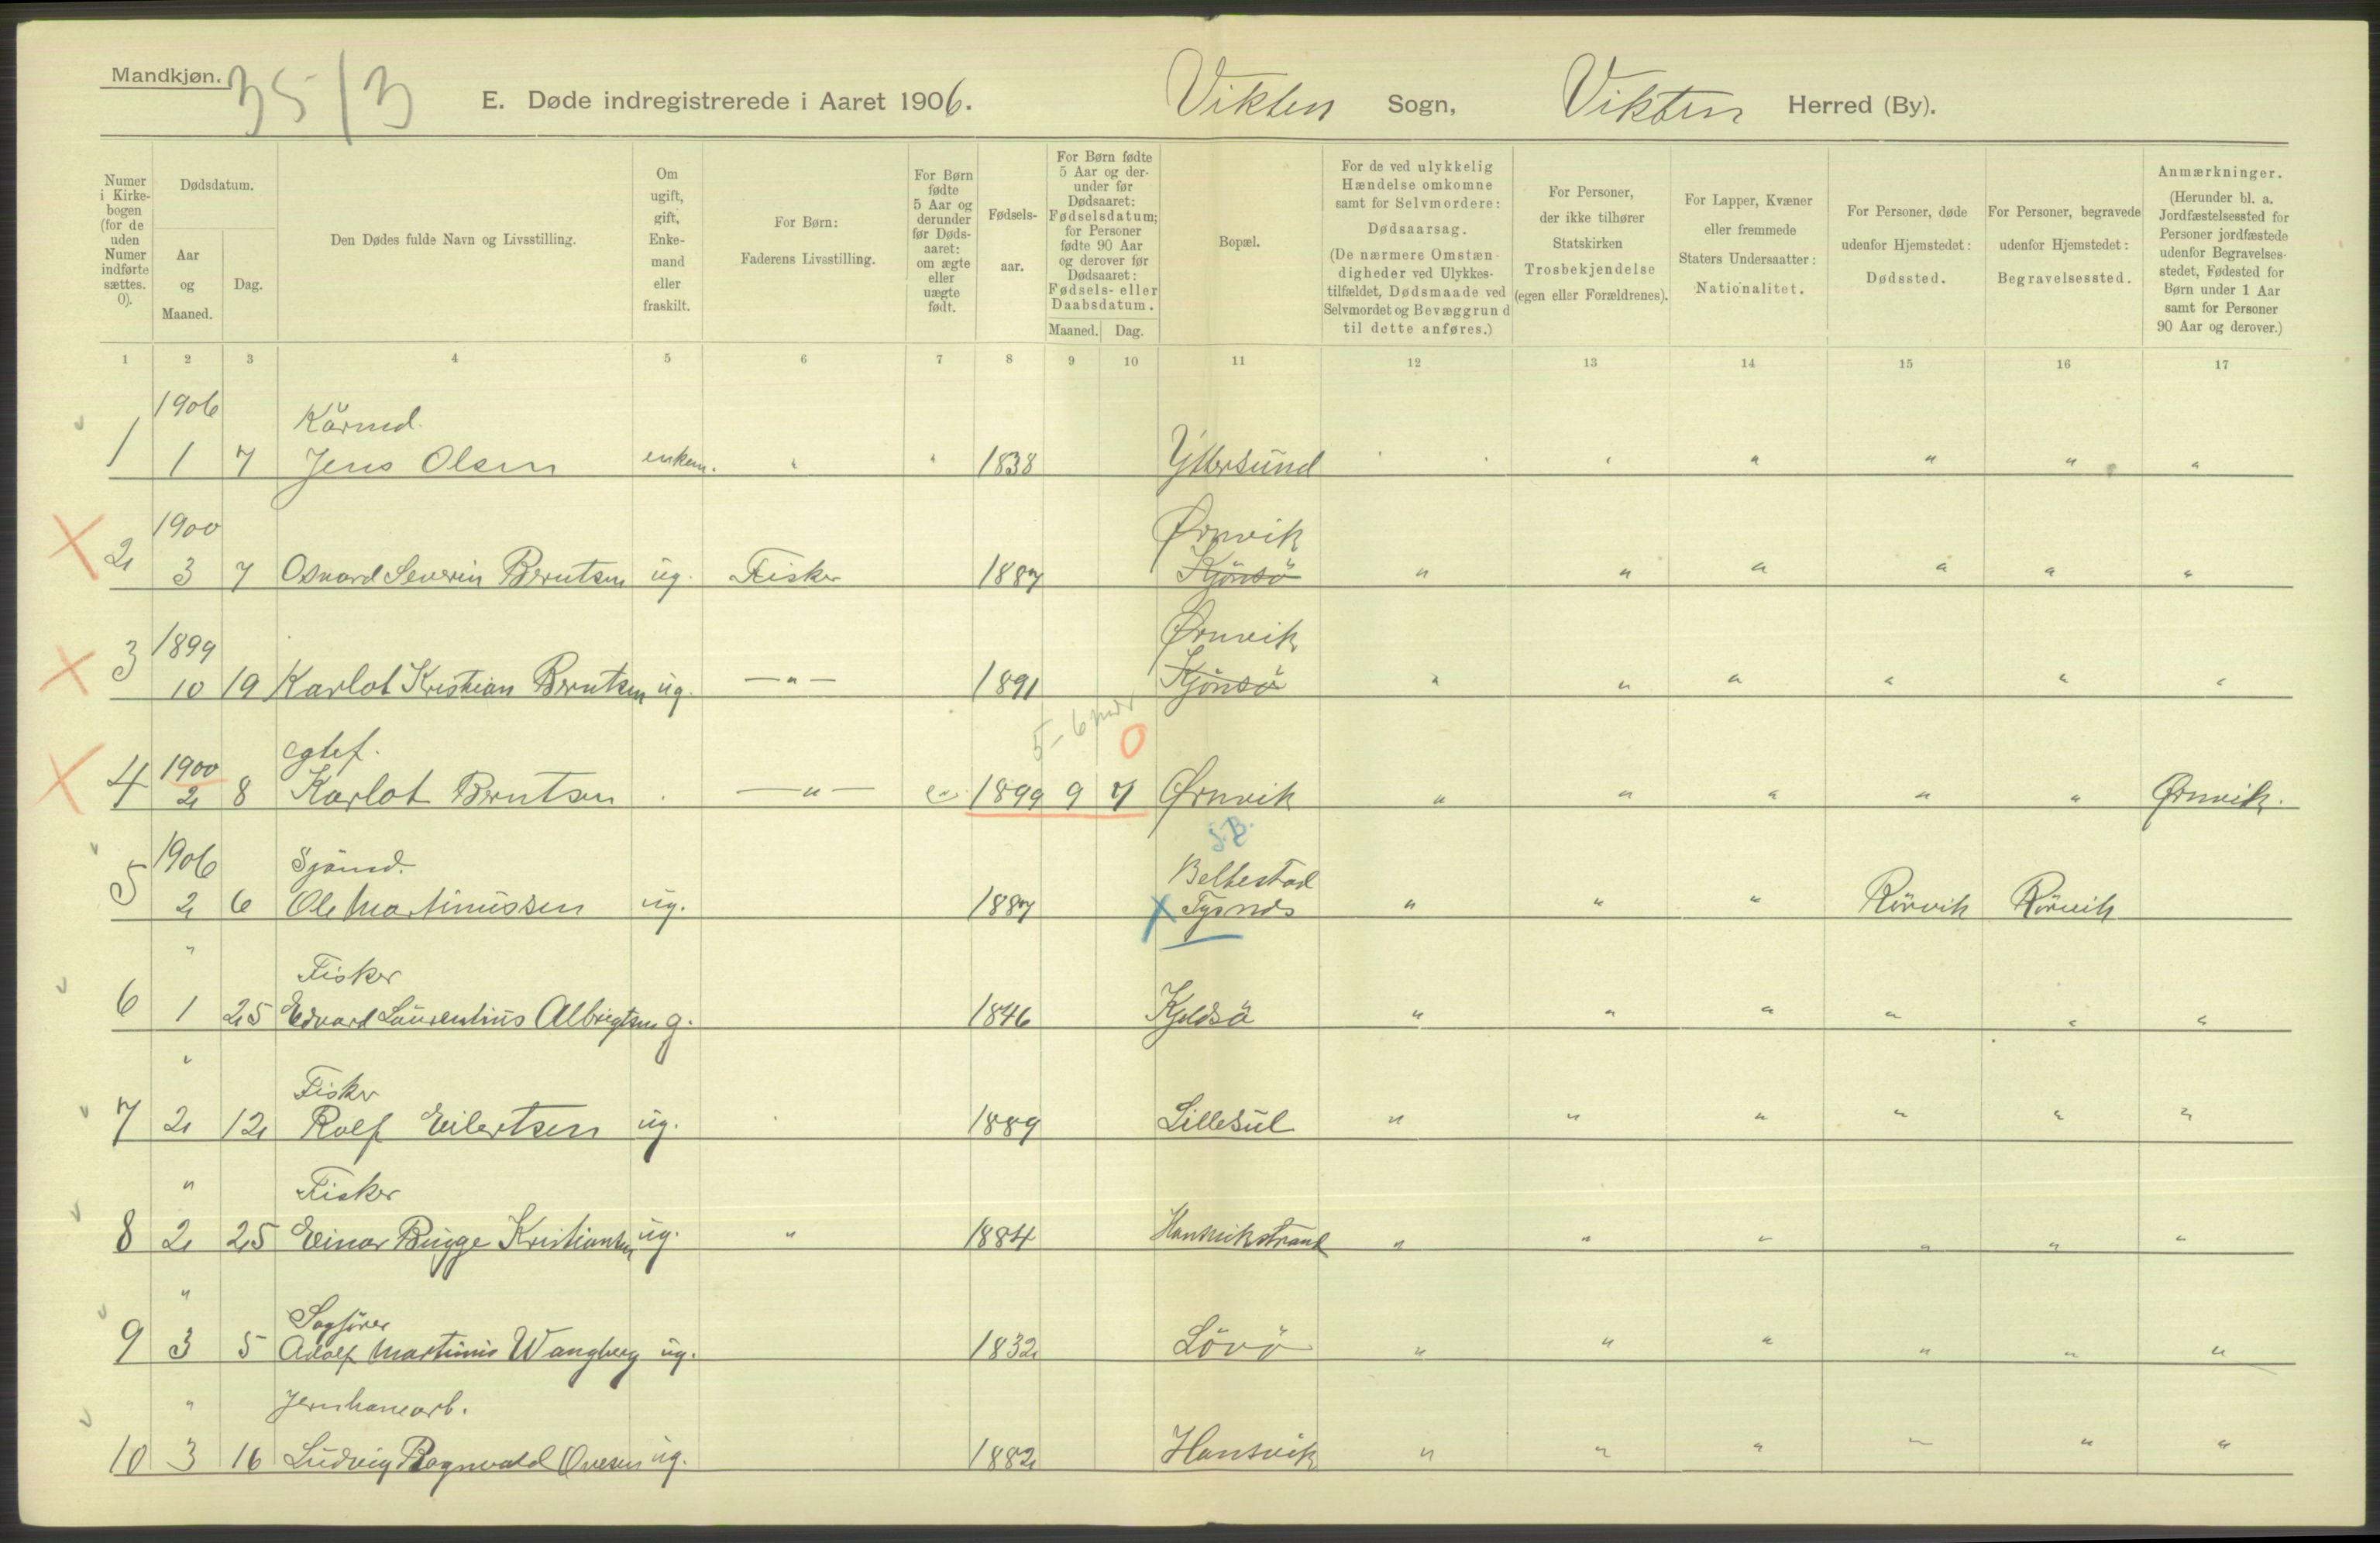 Mandkjøn. 35/3
E. Døde indregistrerede i Aaret 1906. Vikten Sogn, Vikten Herred (By).
Numer i Kirkebogen (for de uden Numer indførte sættes. 0).
Dødsdatum.
Aar og Maaned.
Dag.
Den Dødes fulde Navn og Livsstilling.
Om ugift, gift, Enkemand eller fraskilt.
For Børn: Faderens Livsstilling.
For Børn fødte 5 Aar og derunder før Dødsaaret: om ægte eller uægte født.
Fødselsaar.
For Børn fødte 5 Aar og derunder før Dødsaaret: Fødselsdatum; for Personer fødte 90 Aar og derover før Dødsaaret: Fødsels- eller Daabsdatum.
Maaned. Dag.
Bopæl.
For de ved ulykkelig Hændelse omkomne samt for Selvmordere: Dødsaarsag. (De nærmere Omstændigheder ved Ulykkestilfældet, Dødsmaade ved Selvmordet og Bevæggrund til dette anføres.)
For Personer, der ikke tilhører Statskirken Trosbekjendelse (egen eller Forældrenes).
For Lapper, Kvæner eller fremmede Staters Undersaatter: Nationalitet.
For Personer, døde udenfor Hjemstedet: Dødssted.
For Personer, begravede udenfor Hjemstedet: Begravelsessted.
Anmærkninger. (Herunder bl. a. Jordfæstelsessted for Personer jordfæstede udenfor Begravelsesstedet, Fødested for Børn under 1 Aar samt for Personer 90 Aar og derover.)
1 2 3 4 5 6 7 8 9 10 11 12 13 14 15 16 17
1906 Kårmd.
1 1 7 Jens Olsen enkem. " " 1838 Yttersund " " " " " "
1900 Ørnvik
2 3 7 Osvard Severin Berntsen ug. Fisker 1887 Kjönsö " " " " " "
1899 Ørnvik
3 10 19 Karlot Kristian Berntsen ug. —"— 1891 Kjönsö " " " " " "
5-6 mdr
1900 egtef. 0
4 2 8 Karlot Berntsen —"— e. 1899 9 7 Ørnvik " " " " " Ørnvik.
S.B.
1906 Sjömd. Beltestad
5 2 6 Ole Martinussen ug. 1887 X Tysnds " " " Rörvik Rörvik
" Fisker
6 1 25 Edvard Laurentius Albrigtsen g. 1846 Kjeldsö " " " " " "
" Fisker
7 2 12 Rolf Eilertsen ug. 1889 Lillesul " " " " " "
" Fisker
8 2 25 Einar Bugge Kristiansen ug. " 1884 Hansvikstrand " " " " " "
" Sagfører
9 3 5 Adolf Martinus Wangberg ug. 1832 Lövö " " " " " "
" Jernbanearb.
10 3 16 Ludvig Ragnvald Ovesen ug. 1882 Hansvik " " " " " "